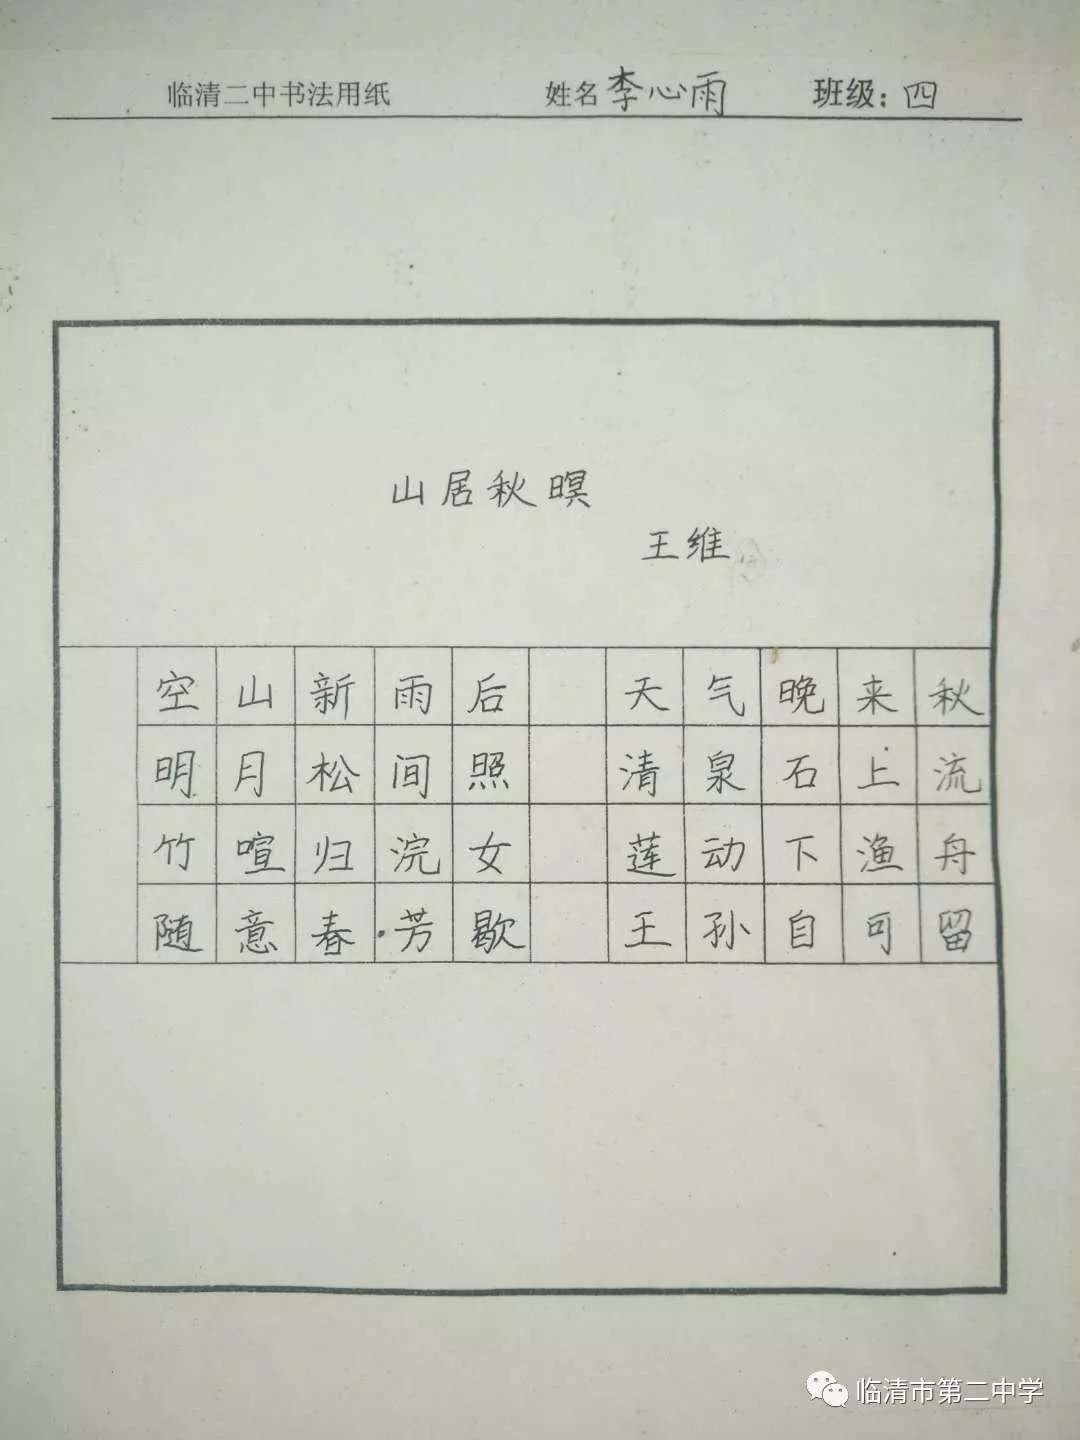 临清二中书法用纸 姓名 李心雨 班级：四
山居秋暝
王维
空山新雨后 天气晚来秋
明月松间照 清泉石上流
竹喧归浣女 莲动下渔舟
随意春芳歇 王孙自可留
临清市第二中学